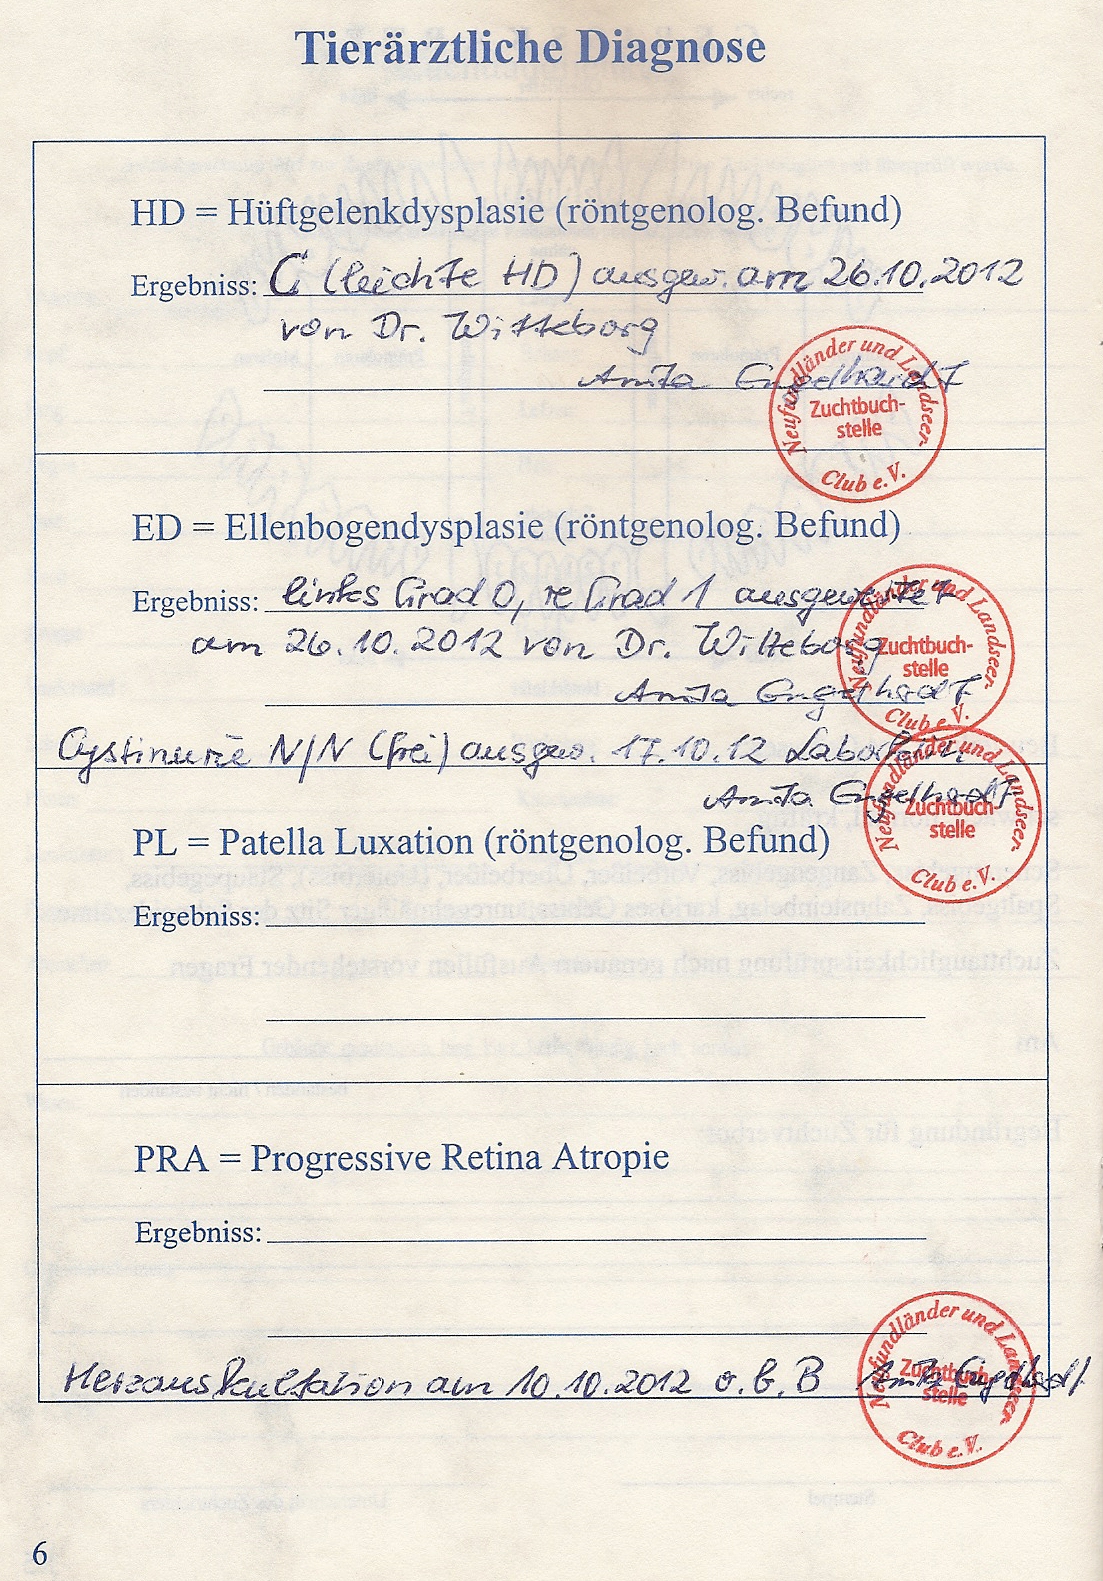 Tierärztliche Diagnose
HD = Hüftgelenkdysplasie (röntgenolog. Befund)
Ergebniss: C (leichte HD) ausgew. am 26.10.2012
von Dr. Witteborg
Anita Engelhardt
Neufundländer und Landseer-
Zuchtbuch-
stelle
Club e.V.
ED = Ellenbogendysplasie (röntgenolog. Befund)
Ergebniss: links Grad 0, re Grad 1 ausgewertet
am 26.10.2012 von Dr. Witteborg
Anita Engelhardt
Neufundländer und Landseer-
Zuchtbuch-
stelle
Club e.V.
Cystinurie N/N (frei) ausgew. 17.10.12
Anita Engelhardt
Neufundländer und Landseer-
Zuchtbuch-
stelle
Club e.V.
PL = Patella Luxation (röntgenolog. Befund)
Ergebniss:
PRA = Progressive Retina Atropie
Ergebniss:
Herzauskultation am 10.10.2012 o.b.B Anita Engelhardt
Neufundländer und Landseer-
Zuchtbuch-
stelle
Club e.V.
6